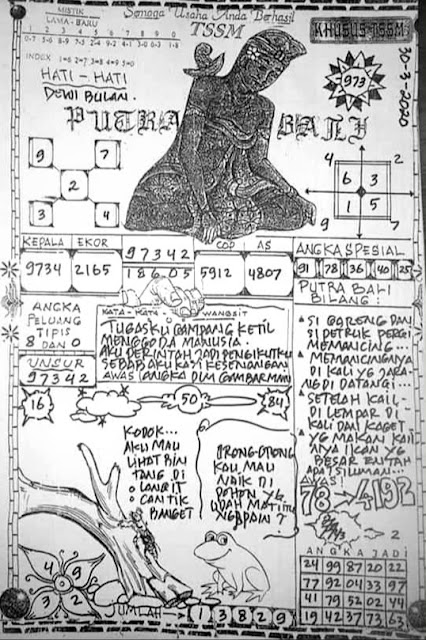 Semoga Usaha Anda Berhasil
MISTIK
LAMA - BARU
TSSM
KHUSUS TSSM
1 2 3 4 5 6 7 8 9 0
INDEX 1=6 2=7 3=8 4=9 5=0
973
30-3-2020
HATI - HATI
DEWI BULAN.
PUTRA BALI
9 7
2
3 4
4 2
6 3
1 5
9 7
KEPALA EKOR
9734 2165
97342
18605
COP AS
5912 4807
ANGKA SPESIAL
91 78 36 40 25
ANGKA
PELUANG
TIPIS
8 DAN 0
UNSUR
97342
KATA - KATA WANGSIT
TUGASKU GAMPANG KETIL
MENGGODA MANUSIA.
AKU PERINTAH JADI PENGIKUTKU
SEBAB AKU KASI KESENANGAN
AWAS ANGKA DLM GAMBAR MANI
PUTRA BALI
BILANG:
SI GARENG DAN
SI PETRUK PERGI
MEMANCING...
MEMANCINGNYA
DI KALI YG JARA-
NG DI DATANGI...
SETELAH KAIL
DI LEMPAR DI
KALI DAN KAGET
YG MAKAN KAIL
NYA IKAN YG
BESAR ENTAH
ADA SILUMAN...
AWAS!
78 → 4192
16
50
84
KODOK...
AKU MAU
LIHAT BIN
TANG DI
LANGIT
CANTIK
BANGET
ORONG-ORONG
KAU MAU
NAIK DI
POHON YG
UDAH MATI ITU
NGAPAIN?
2
4 9
3 2
JUMLAH → 1 3 8 2 9
ANGKA JADI
24 99 87 20 22
77 92 04 33 97
41 79 52 02 44
19 42 37 73 63